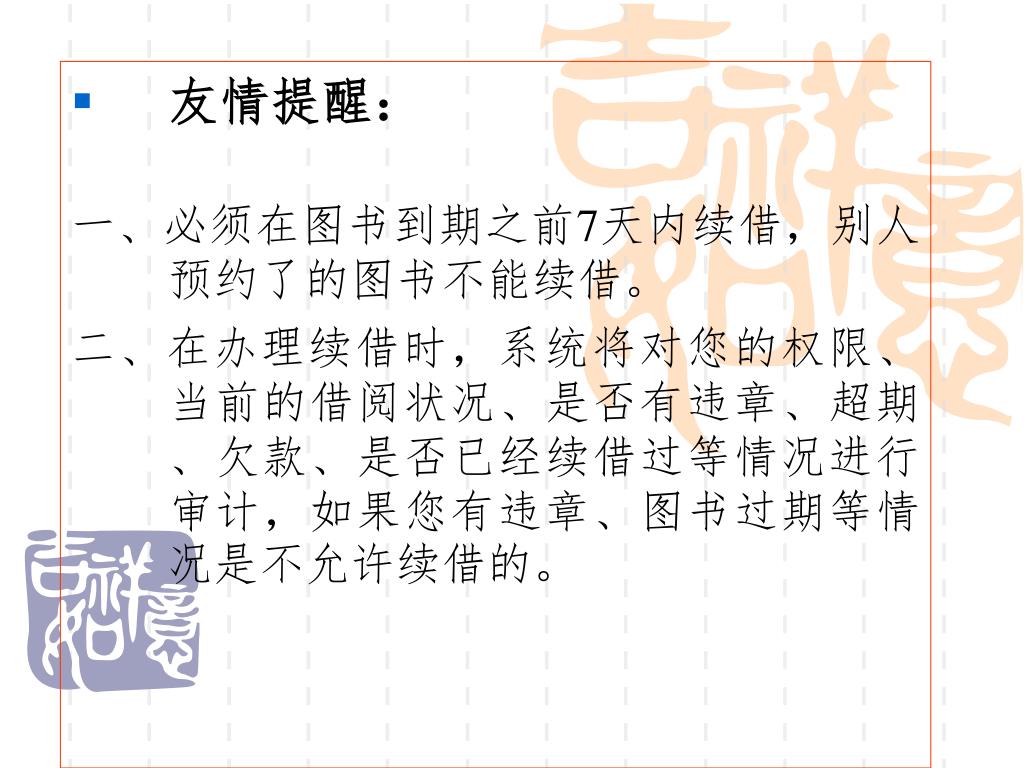 友情提醒：
一、必须在图书到期之前7天内续借，别人
预约了的图书不能续借。
二、在办理续借时，系统将对您的权限、
当前的借阅状况、是否有违章、超期
、欠款、是否已经续借过等情况进行
审计，如果您有违章、图书过期等情
况是不允许续借的。
吉祥
如意
吉祥
如意